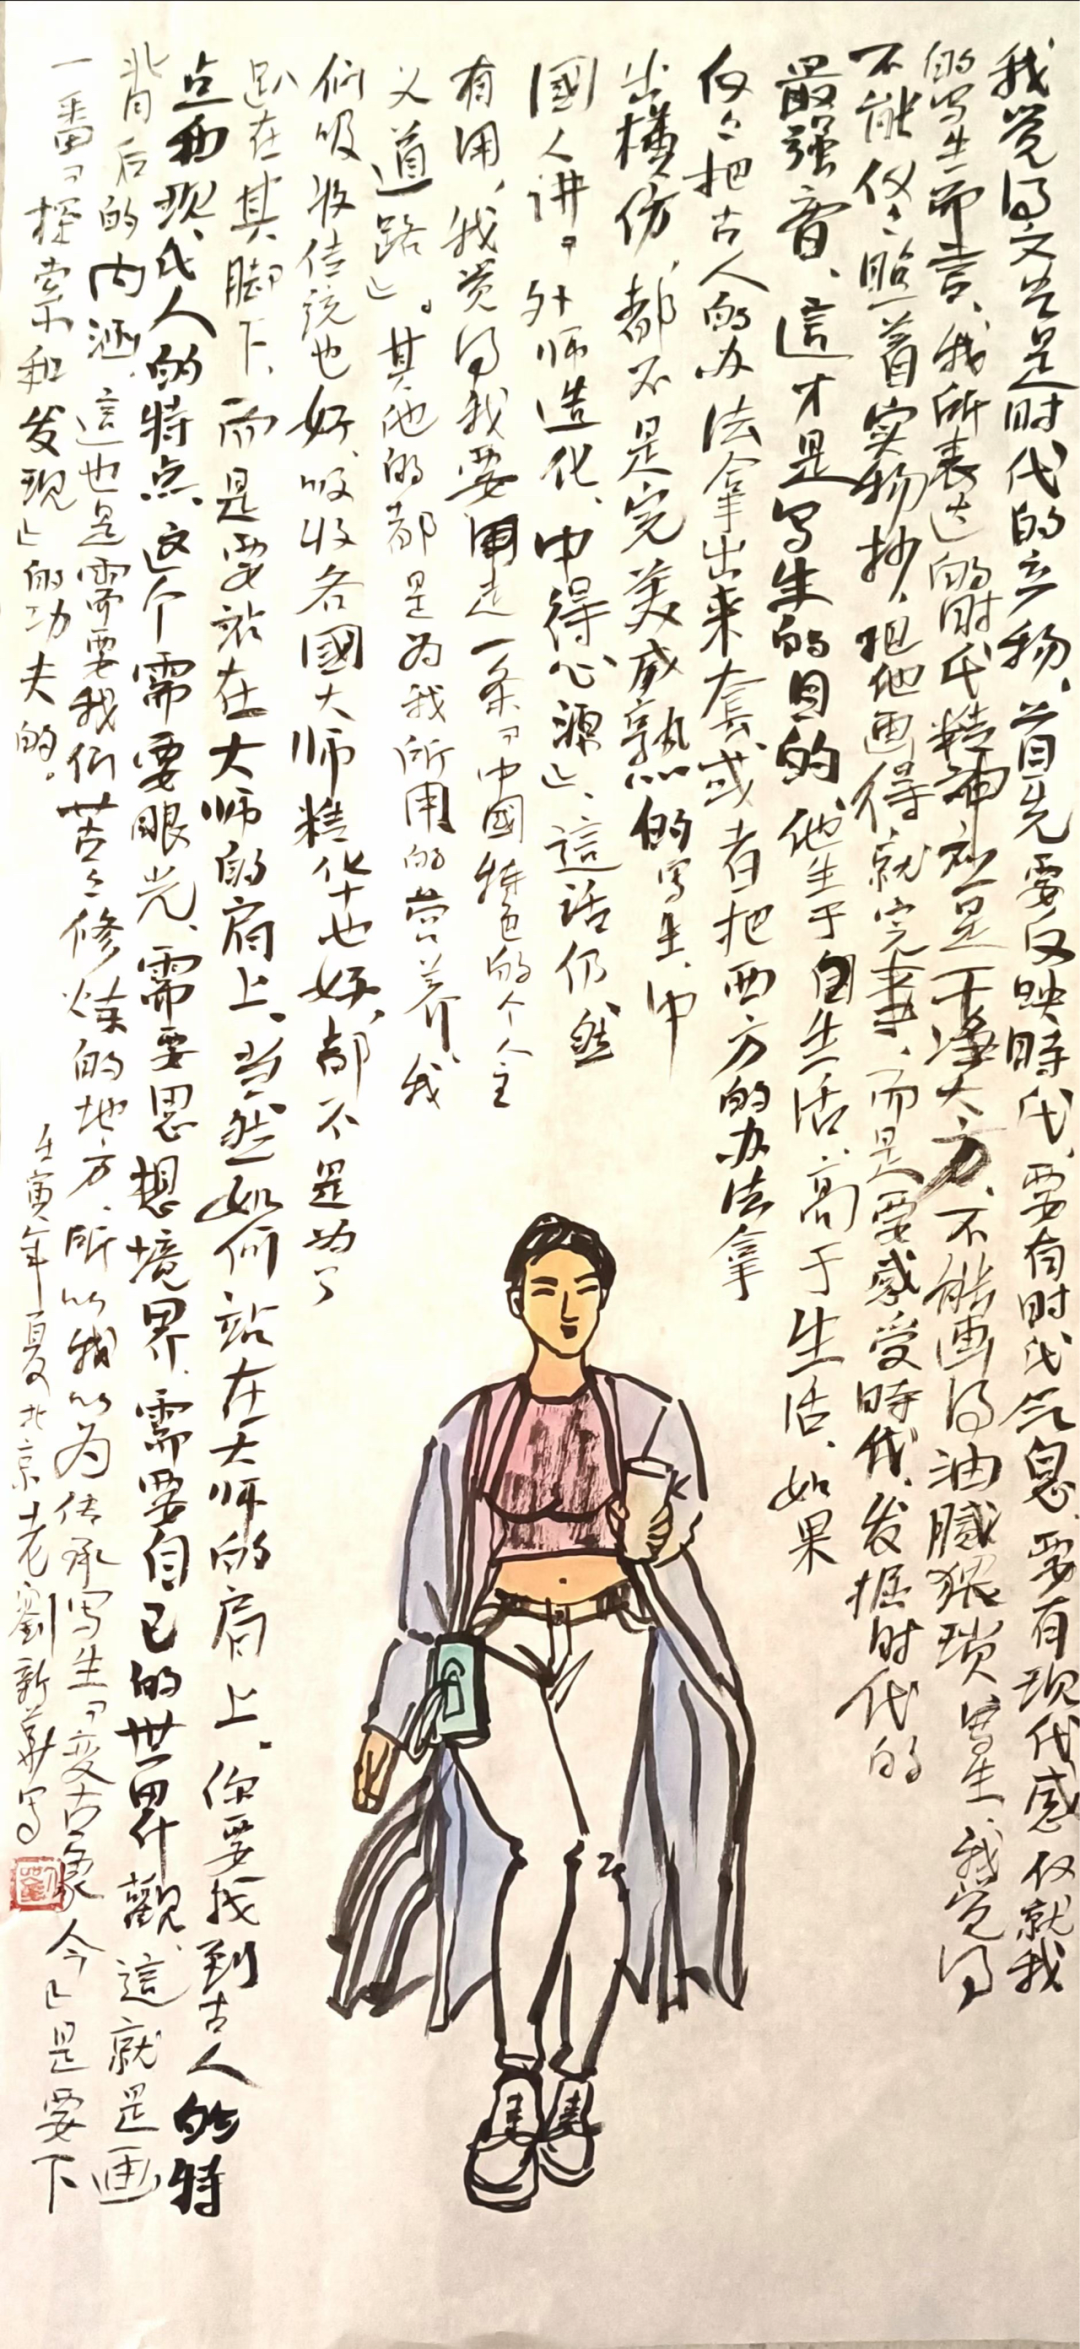 我觉得文艺是时代的产物、首先要反映時代、要有时代气息、要有现代感、仅就我
的写生而言、我所表达的时代精神应是干净大方、不能画得油腻猥琐、写生、我觉得
不能仅仅照着实物抄、把他画得就完事、而是要感受時代、发掘时代的
最强音、這才是写生的目的、他生于自生活、高于生活、如果
仅仅把古人的办法拿出来套或者把西方的办法拿
出模仿、都不是完美成熟的写生、中
國人讲「外师造化、中得心源」、這话仍然
有用、我觉得我要用走一条「中國特色的个人主
义道路」。其他的都是为我所用的营养、我
们吸收传统也好、吸收各國大师精华也好、都不是为了
趴在其脚下、而是要站在大师的肩上、当然如何站在大师的肩上、你要找到古人的特
点和现代人的特点、这个需要眼光、需要思想境界、需要自己的世界觀、這就是画
背后的内涵、這也是需要我们苦苦修炼的地方、所以我以为传承写生「变古象今」是要下
一番「探索和发现」的功夫的。
壬寅年夏北京老劉新華写
劉